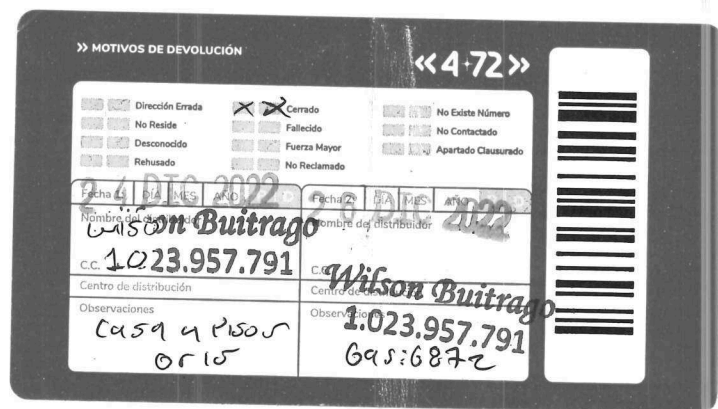 >> MOTIVOS DE DEVOLUCIÓN
<<4-72>>
Dirección Errada
No Reside
Desconocido
Rehusado
Cerrado
Fallecido
Fuerza Mayor
No Reclamado
No Existe Número
No Contactado
Apartado Clausurado
Fecha 1: DÍA MES AÑO
24 DIC 2022
Nombre del distribuidor
Wilson Buitrago
C.C. 1.023.957.791
Centro de distribución
Observaciones
Casa 4 Pisos
Fecha 2: DÍA MES AÑO
26 DIC 2022
Nombre del distribuidor
Wilson Buitrago
C.C.
1.023.957.791
Centro de distribución
Observaciones
Gas: 6872